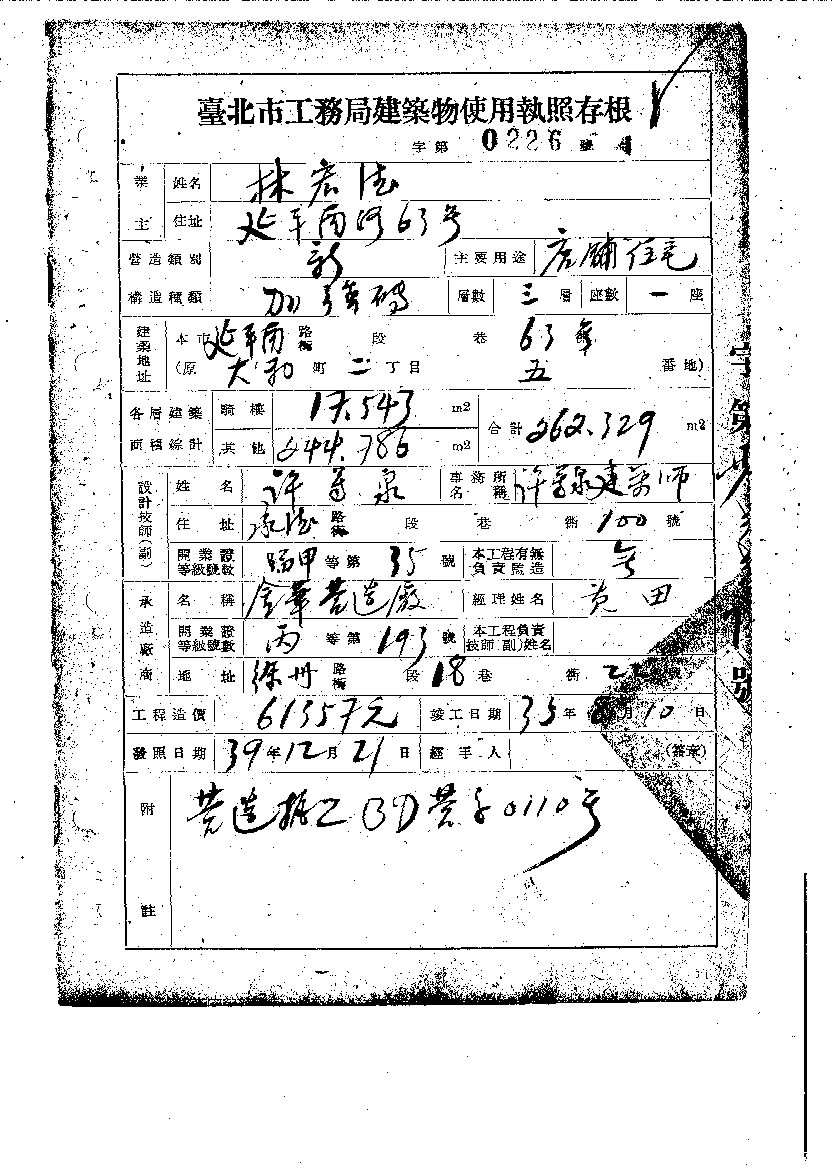 臺北市工務局建築物使用執照存根
字第 0226 號
業主 姓名 林宏德
住址 延平南路63号
營造類別 新 主要用途 店鋪住宅
構造種類 加強磚 層數 三 層 座數 一 座
建築地址 本市 延平南 路街 段 巷 63号
(原 大和 町 二 丁目 五 番地)
各層建築面積總計 騎樓 17.543 m2 合計 262.329 m2
其他 244.786 m2
設計技師(副) 姓名 許 泉 事務所名稱 建築師
住址 承德 路街 段 巷 衖 100 號
開業證等級號數 甲 等第 35 號 本工程有無負責監造 無
承造廠商 名稱 金華營造廠 經理姓名 田
開業證等級號數 丙 等第 193 號 本工程負責技師(副)姓名
地址 徐州 路街 段 18 巷 衖 22 號
工程造價 61357元 竣工日期 35 年 月 10 日
發照日期 39 年 12 月 21 日 經手人 (簽章)
附註 营造執乙(37)营字0110号
字第
號